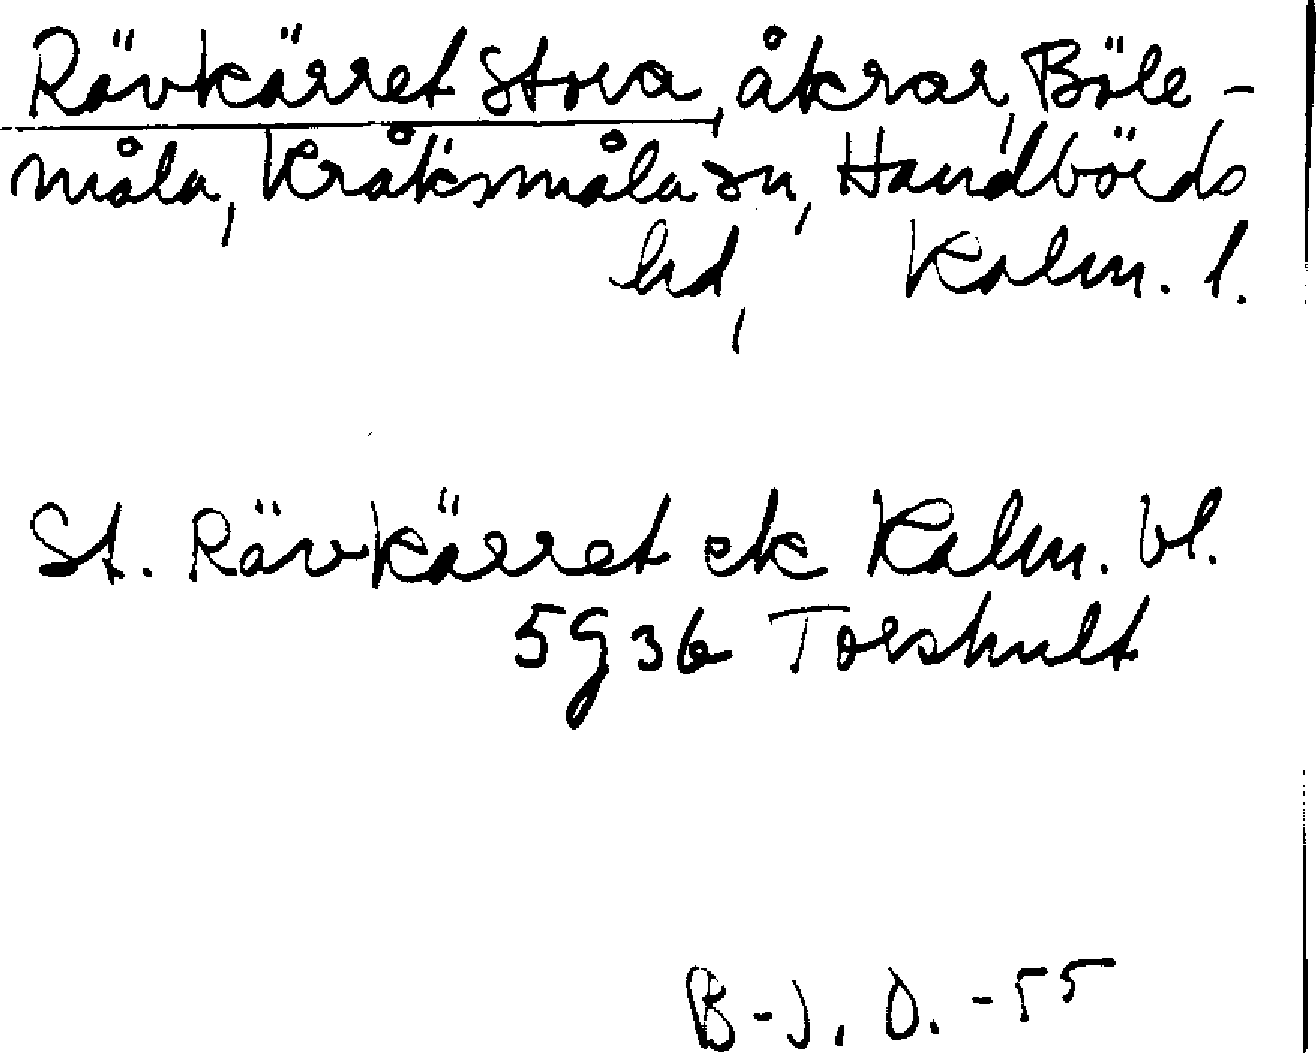 Rävkärret Stora, åkrar, Böle-
måla, Kråksmåla sn, Handbörds
hd, Kalm. l.
St. Rävkärret ek Kalm. bl.
5 g 36 Torshult
B-J. O. -55